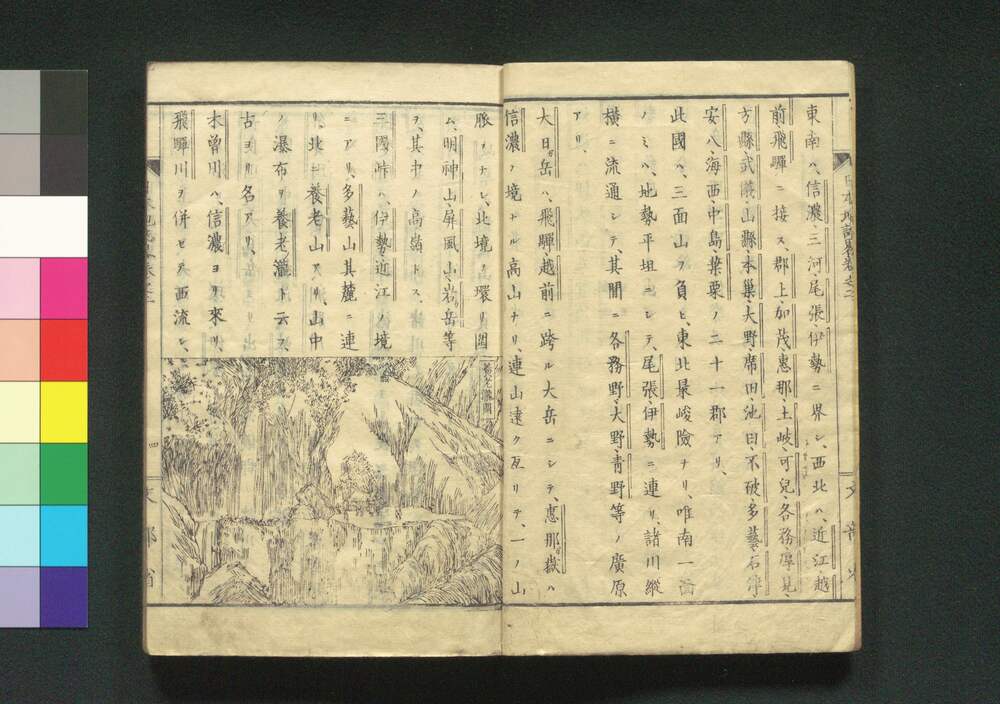 東南ハ、信濃、三河、尾張、伊勢ニ界シ、西北ハ近江、越
前、飛驒ニ接ス、郡上、加茂、惠那、土岐、可兒、各務、厚見、
方縣、武儀、山縣、本巢、大野、席田、池田、不破、多藝、石津、
安八、海西、中島、葉栗ノ二十一郡アリ、
此國ハ、三面山ヲ負ヒ、東北最峻險ナリ、唯南一面
ノミハ、地勢平坦ニシテ、尾張、伊勢ニ連リ、諸川縱
橫ニ流通シテ、其間ニ各務野、大野、青野等ノ廣原
アリ、
大日岳ハ、飛驒、越前ニ跨ル大岳ニシテ、惠那嶽ハ
信濃ノ境ナル高山ナリ、連山遠ク亙リテ、一ノ山
脈ヲナシ、北境ヲ環リ圍
ム、明神山、屏風山、岩岳等
ヲ、其中ノ高嶽トス、
三國峠ハ、伊勢、近江ノ境
ニアリ、多藝山其麓ニ連
リ、北ニ養老山アリ、山中
ノ瀑布ヲ養老瀧ト云フ、
古ヨリ名アリ、
木曾川ハ、信濃ヨリ來リ、
飛驒川ヲ併セテ西流シ、
四
文部省